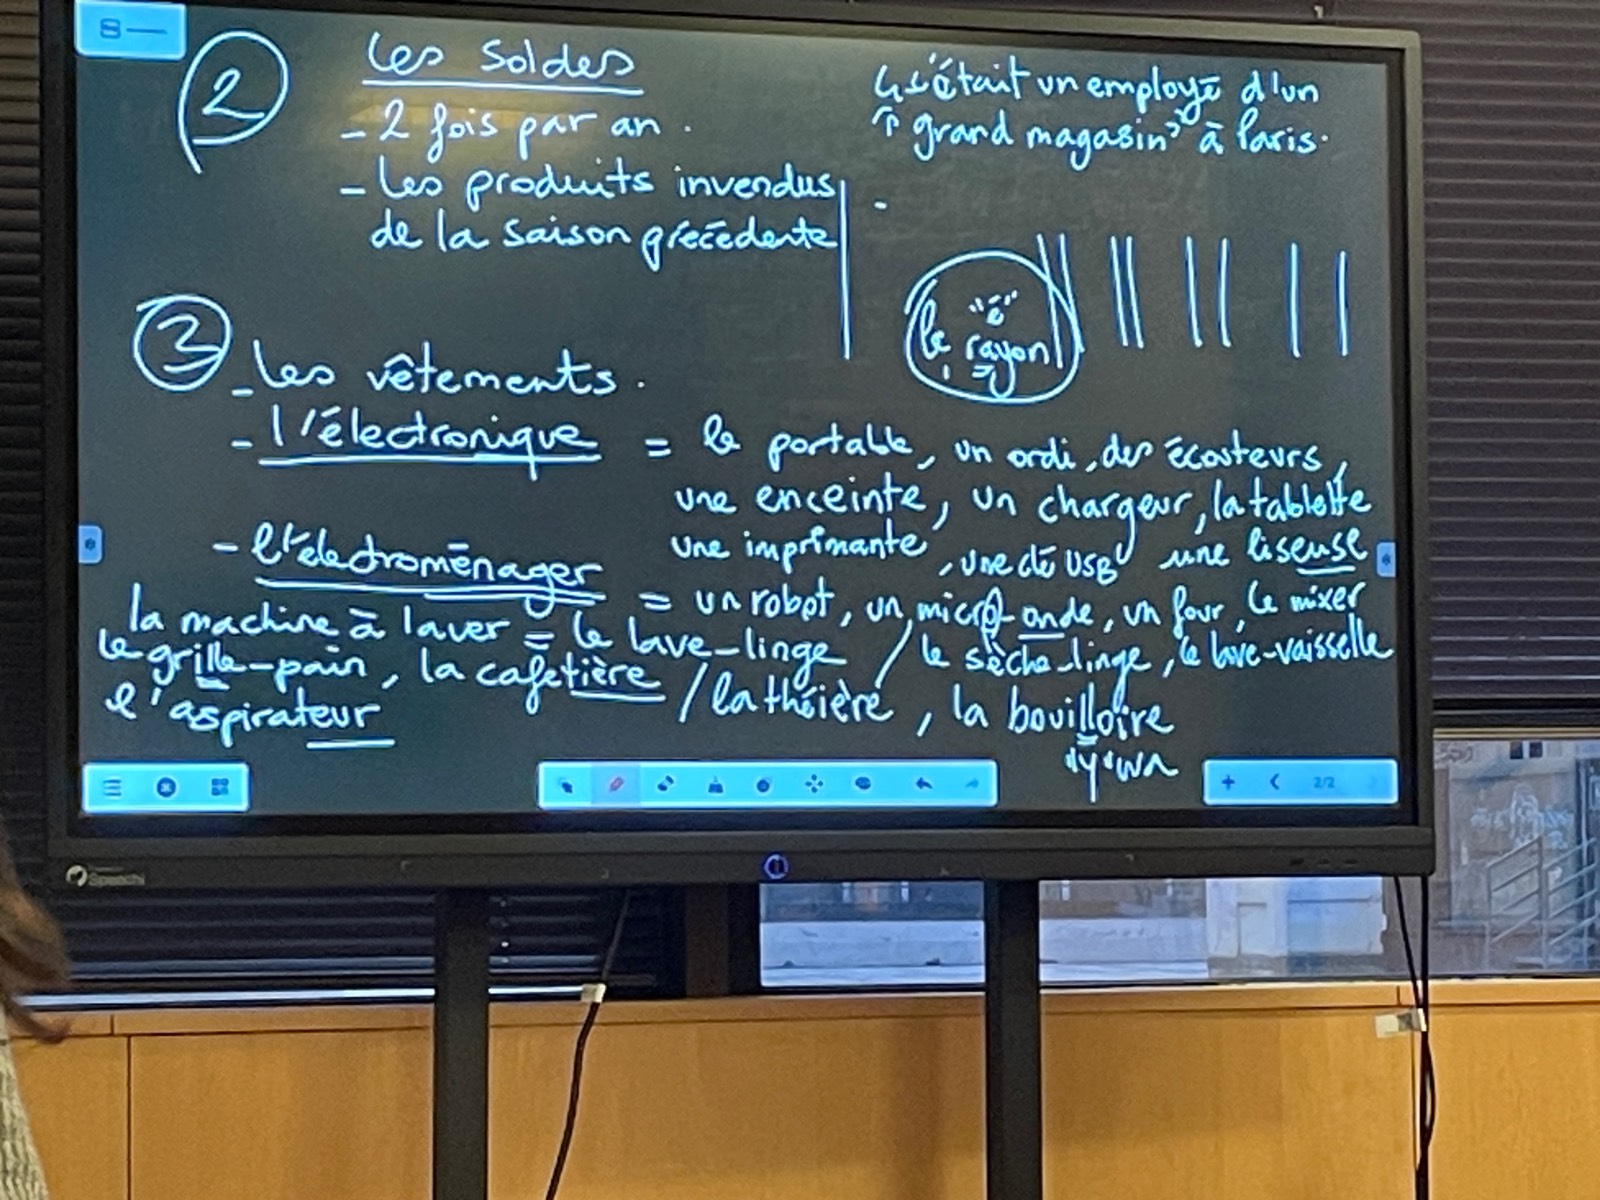 2
Les Soldes
- 2 fois par an.
- Les produits invendus
de la saison précédente
↳ c'était un employé d'un
"grand magasin" à Paris.
-
"é"
le rayon
3
- Les vêtements.
- l'électronique = le portable, un ordi, des écouteurs,
une enceinte, un chargeur, la tablette
une imprimante, une clé USB une liseuse
- l'électroménager = un robot, un micro-onde, un four, le mixer
la machine à laver = le lave-linge / le sèche-linge, le lave-vaisselle
le grille-pain, la cafetière / la théière, la bouilloire
l'aspirateur
"y" wa
2/2
Speechi